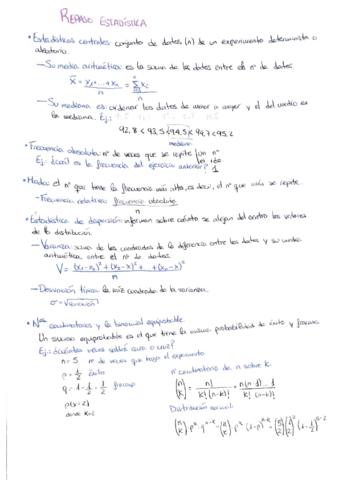 REPASO ESTADÍSTICA
• Estadísticos centrales conjunto de datos (n) de un experimento determinista o
aleatorio.
— Su media aritmética es la suma de los datos entre el nº de datos
x̄ = x₁+...+xₙ / n = Σ xᵢ / n
— Su mediana es: ordenar los datos de menor a mayor y el del medio es
la mediana. Ej:
92,8 < 93,5 < 94,5 < 94,7 < 95,2
mediana
• Frecuencia absoluta: nº de veces que se repite un nº
Ej: ¿cuál es la frecuencia del ejercicio anterior? 1
• Moda: el nº que tiene la frecuencia más alta, es decir, el nº que más se repite.
— Frecuencia relativa: frecuencia absoluta / n
• Estadístico de dispersión: informan sobre cuánto se alejan del centro los valores
de la distribución.
— Varianza: suma de los cuadrados de la diferencia entre los datos y su media
aritmética entre el nº de datos.
V = (x₁-x̄)² + (x₂-x̄)² + ... + (xₙ-x̄)² / n
— Desviación típica: la raíz cuadrada de la varianza.
σ = √varianza
• Nos combinatorios y la binomial equiprobable.
Un suceso equiprobable es el que tiene la misma probabilidad de éxito y fracaso.
Ej: ¿cuántas veces saldrá cara o cruz?
n = 5 nº de veces que hago el experimento
p = 1/2 éxito
q = 1 - 1/2 = 1/2 fracaso
p(x=2)
donde k=2
nº combinatorio de n sobre k:
(n k) = n! / k!(n-k)! = n(n-1)...1 / k!(n-k)!
Distribución
(n k) · pᵏ · qⁿ⁻ᵏ = (n k) pᵏ (1-p)ⁿ⁻ᵏ = (5 2) (1/2)² (1-1/2)⁵⁻²